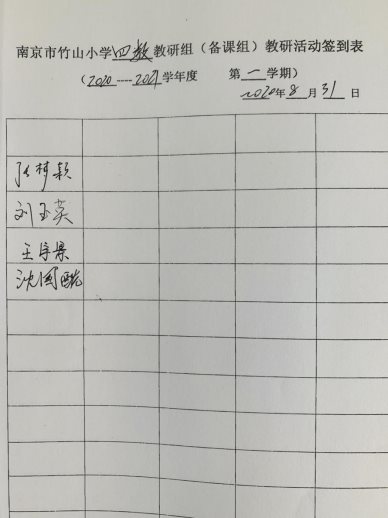 南京市竹山小学四数教研组（备课组）教研活动签到表
（2020----2021学年度 第一学期）
2020年8月31日
张梦颖
刘玉英
王字景
沈国